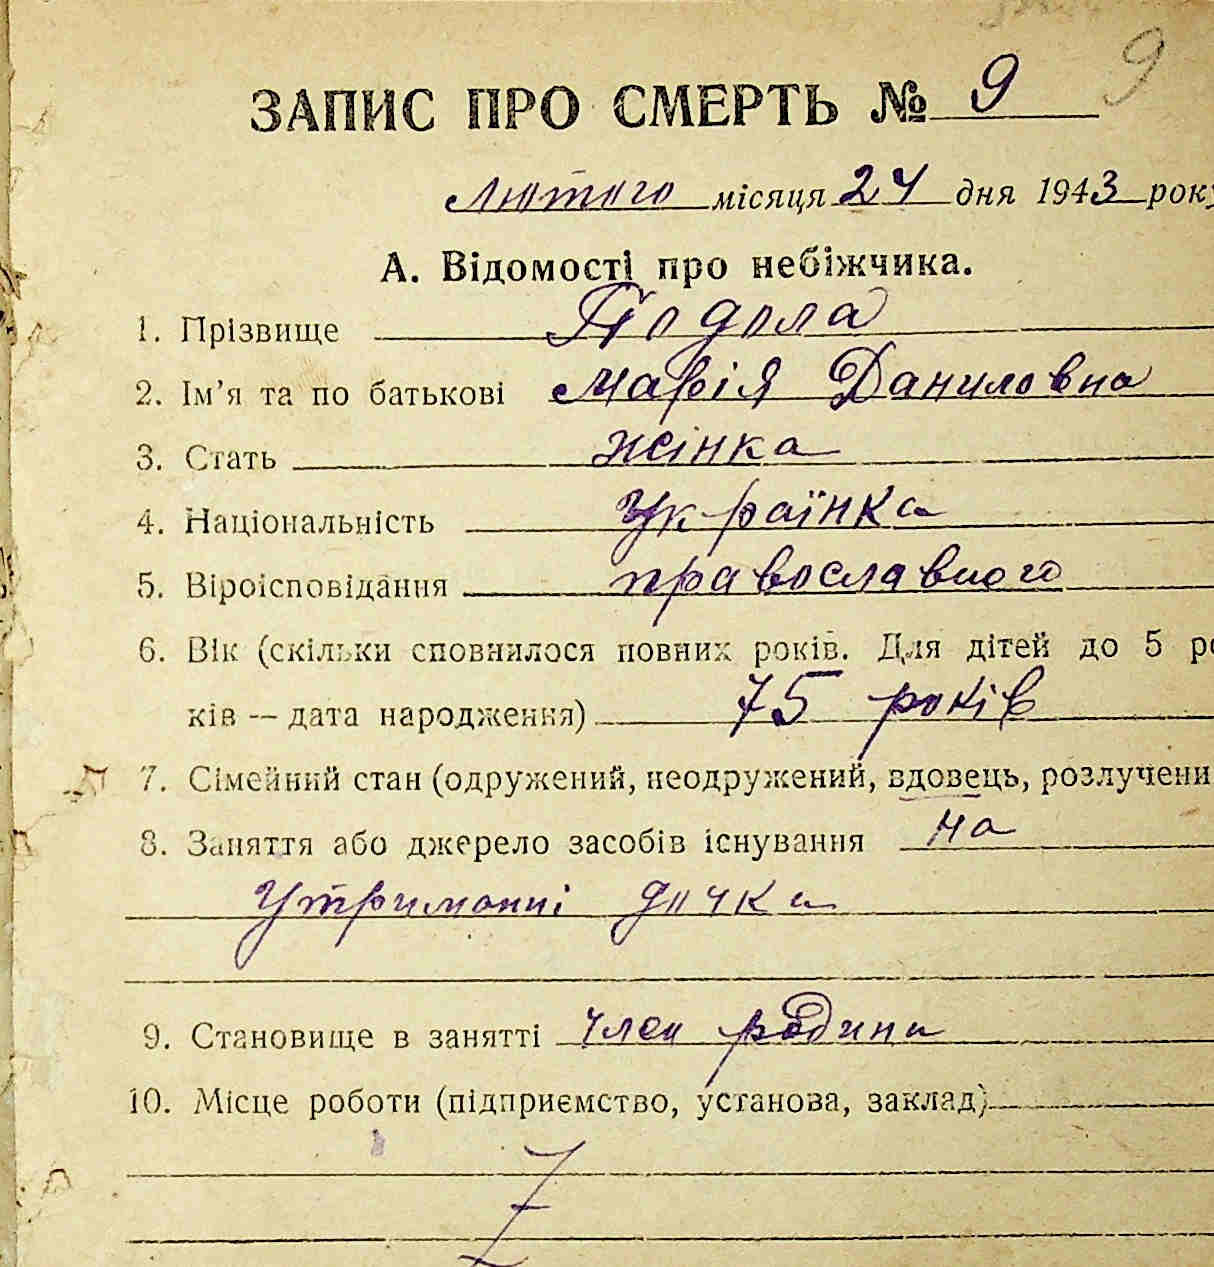 9
ЗАПИС ПРО СМЕРТЬ № 9
лютого місяця 24 дня 1943 року
А. Відомості про небіжчика.
1. Прізвище Подола
2. Ім'я та по батькові Марія Даниловна
3. Стать жінка
4. Національність Українка
5. Віроісповідання православного
6. Вік (скільки сповнилося повних років. Для дітей до 5 ро
ків — дата народження) 75 років
7. Сімейний стан (одружений, неодружений, вдовець, розлучени
8. Заняття або джерело засобів існування на
утриманні дочка
9. Становище в занятті член родини
10. Місце роботи (підприємство, установа, заклад)